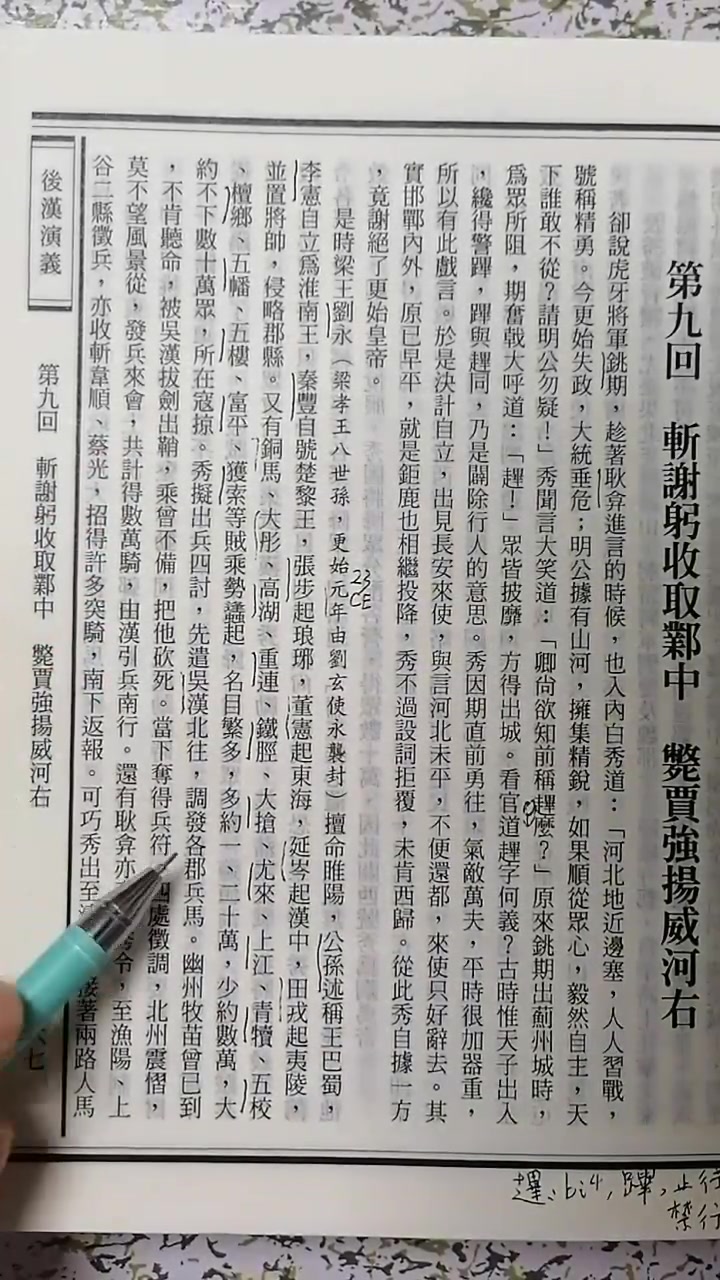 第九回　斬謝躬收取鄴中　斃賈強揚威河右
卻說虎牙將軍銚期，趁著耿弇進言的時候，也入內白秀道：「河北地近邊塞，人人習戰，
號稱精勇。今更始失政，大統垂危；明公據有山河，擁集精銳，如果順從眾心，毅然自主，天
下誰敢不從？請明公勿疑！」秀聞言大笑道：「卿尚欲知前稱趩麼？」原來銚期出薊州城時，
為眾所阻，期奮戟大呼道：「趩！」眾皆披靡，方得出城。看官道趩字何義？古時惟天子出入
，纔得警蹕，蹕與趩同，乃是闢除行人的意思。秀因期直前勇往，氣敵萬夫，平時很加器重，
所以有此戲言。於是決計自立，出見長安來使，與言河北未平，不便還都，來使只好辭去。其
實邯鄲內外，原已早平，就是鉅鹿也相繼投降，秀不過設詞拒覆，未肯西歸。從此秀自據一方
，竟謝絕了更始皇帝。
是時梁王劉永（梁孝王八世孫，更始元年由劉玄使永襲封）擅命睢陽，公孫述稱王巴蜀，
23
CE
李憲自立為淮南王，秦豐自號楚黎王，張步起琅琊，董憲起東海，延岑起漢中，田戎起夷陵，
並置將帥，侵略郡縣。又有銅馬、大彤、高湖、重連、鐵脛、大搶、尤來、上江、青犢、五校
、檀鄉、五幡、五樓、富平、獲索等賊乘勢蠭起，名目繁多，多約一、二十萬，少約數萬，大
約不下數十萬眾，所在寇掠。秀擬出兵四討，先遣吳漢北往，調發各郡兵馬。幽州牧苗曾已到
，不肯聽命，被吳漢拔劍出鞘，乘曾不備，把他砍死。當下奪得兵符，四處徵調，北州震慴，
莫不望風景從，發兵來會，共計得數萬騎，由漢引兵南行。還有耿弇亦 令，至漁陽、上
谷二縣徵兵，亦收斬韋順、蔡光，招得許多突騎，南下返報。可巧秀出至 接著兩路人馬
後漢演義
第九回　斬謝躬收取鄴中　斃賈強揚威河右
六七
bì 蹕，止行
禁行